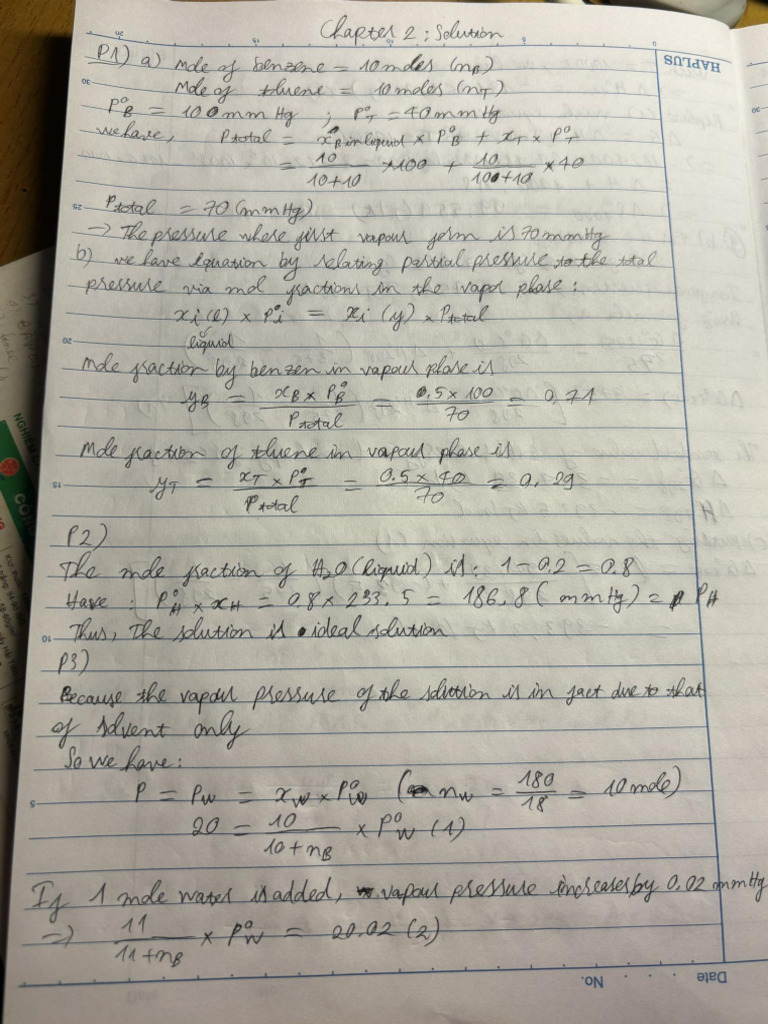 Chapter 2 : Solution
HAPLUS
P1) a) Mole of benzene = 10 moles (nB)
Mole of tluene = 10 moles (nT)
P°B = 100 mm Hg ; P°T = 40 mm Hg
we have, Ptotal = xB in liquid × P°B + xT × P°T
= 10/(10+10) × 100 + 10/(10+10) × 40
Ptotal = 70 (mm Hg)
→ The pressure where first vapour form is 70 mmHg
b) we have equation by relating partial pressure to the total
pressure via mol fractions in the vapor phase :
xi(l) × P°i = xi (y) × Ptotal
liquid
Mole fraction by benzen in vapour phase is
yB = (xB × P°B)/Ptotal = (0.5 × 100)/70 = 0,71
Mole fraction of tluene in vapour phase is
yT = (xT × P°T)/Ptotal = (0.5 × 40)/70 = 0,29
P2)
The mole fraction of H2O (liquid) is : 1 - 0.2 = 0.8
Have : P°H × xH = 0.8 × 233.5 = 186.8 (mmHg) = PH
Thus, The solution is ideal solution
P3)
Because the vapour pressure of the solution is in fact due to that
of solvent only
So we have :
P = PW = xW × P°W (nW = 180/18 = 10 mole)
20 = 10/(10+nB) × P°W (1)
If 1 mole water is added, vapour pressure increases by 0.02 mmHg
=> 11/(11+nB) × P°W = 20.02 (2)
Date No.